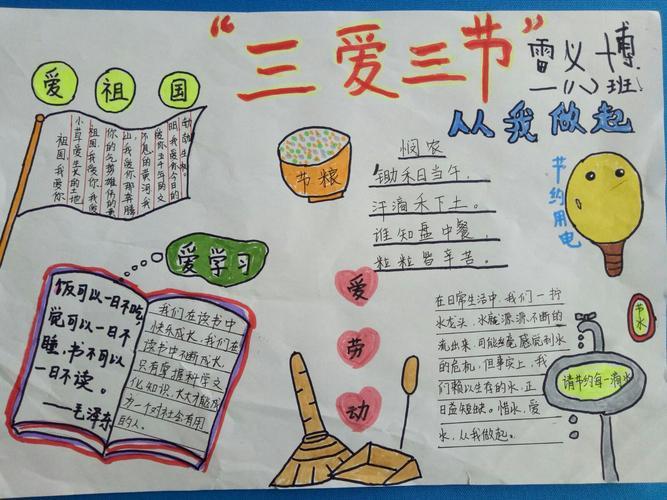 “三爱三节”
雷义博
一（八）班
从我做起
爱祖国
小草爱生长的土地
祖国，我爱你
悯农
锄禾日当午，
汗滴禾下土。
谁知盘中餐，
粒粒皆辛苦。
节粮
节约用电
爱学习
饭可以一日不吃，
觉可以一日不
睡，书不可以
一日不读。
——毛泽东
我们在读书中
快乐成长，我们在
读书中不断成长，
只有掌握科学文
化知识，大才能成
为一个对社会有用
的人。
爱劳动
在日常生活中，我们一拧
水龙头，水就源源不断的
流出来，可能丝毫感觉到水
的危机，但事实上，我
们赖以生存的水，正
日益短缺。惜水、爱
水，从我做起。
节水
请节约每一滴水